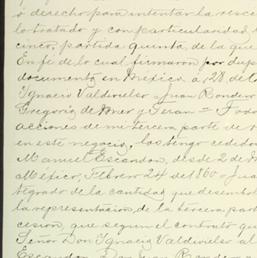 o derecho para intentar la resc
lo tratado y con particularidad
cinco, partida quinta, de la que
En fe de lo cual firmaron por dup
documento, en Mexico, á 28 de
Ignacio Valdivielso = Juan Rondero
Gregorio de Mier y Teran = Todo
acciones de mi tercera parte de
en este negocio, las tengo cedido
Manuel Escandon, desde 2 de
Mexico, Febrero 24 de 1860 = Jua
tegrado de la cantidad que desembol
la representacion de la tercera part
cesion, que segun el contrato que
Señor Don Ignacio Valdivielso al
Escandon, Don Juan Rondero